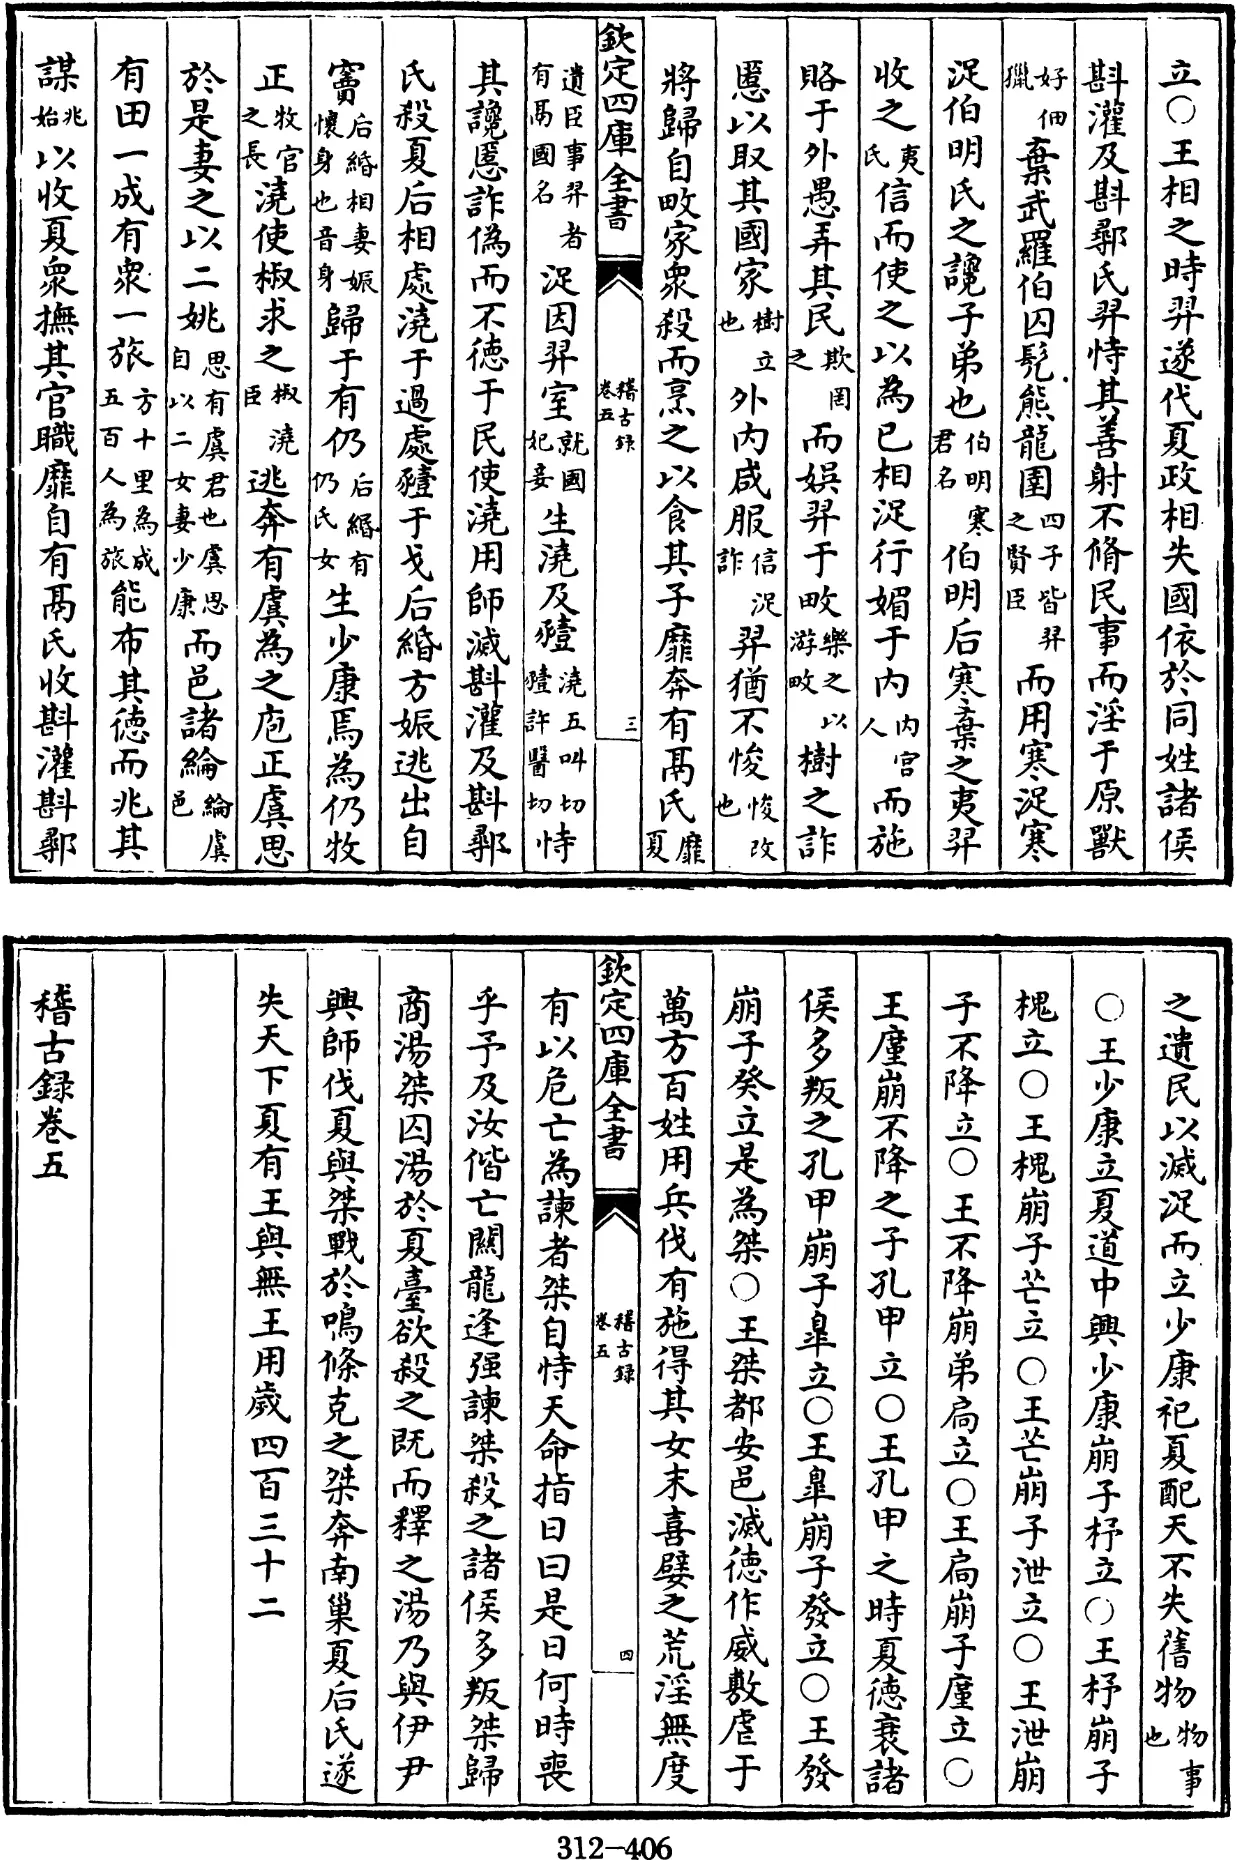 立〇王相之時羿遂代夏政相失國依於同姓諸侯
斟灌及斟鄩氏羿恃其善射不脩民事而淫于原獸
好佃獵棄武羅伯囚髡熊龍圉四子皆羿之賢臣而用寒浞寒
浞伯明氏之讒子弟也伯明寒君名伯明后寒棄之夷羿
收之夷氏信而使之以為已相浞行媚于內內官人而施
賂于外愚弄其民欺罔之而娱羿于畋樂之以游畋樹之詐
慝以取其國家樹立也外内咸服信浞詐羿猶不悛悛改也
將歸自畋家衆殺而烹之以食其子靡奔有鬲氏靡夏
欽定四庫全書
稽古録
卷五
三
遺臣事羿者有鬲國名浞因羿室就國妃妾生澆及豷澆五叫切豷許醫切恃
其讒慝詐偽而不德于民使澆用師滅斟灌及斟鄩
氏殺夏后相處澆于過處豷于戈后緡方娠逃出自
竇后緡相妻娠懷身也音身歸于有仍后緡有仍氏女生少康焉為仍牧
正牧官之長澆使椒求之椒澆臣逃奔有虞為之庖正虞思
於是妻之以二姚思有虞君也虞思自以二女妻少康而邑諸綸綸虞邑
有田一成有衆一旅方十里為成五百人為旅能布其德而兆其
謀兆始以收夏衆撫其官職靡自有鬲氏收斟灌斟鄩
之遺民以滅浞而立少康祀夏配天不失舊物物事也
〇王少康立夏道中興少康崩子杼立〇王杼崩子
槐立〇王槐崩子芒立〇王芒崩子泄立〇王泄崩
子不降立〇王不降崩弟扃立〇王扃崩子廑立〇
王廑崩不降之子孔甲立〇王孔甲之時夏德衰諸
侯多叛之孔甲崩子臯立〇王臯崩子發立〇王發
崩子癸立是為桀〇王桀都安邑滅德作威敷虐于
萬方百姓用兵伐有施得其女末喜嬖之荒淫無度
欽定四庫全書
稽古録
卷五
四
有以危亡為諫者桀自恃天命指日曰是日何時喪
乎予及汝偕亡關龍逢强諫桀殺之諸侯多叛桀歸
商湯桀囚湯於夏臺欲殺之既而釋之湯乃與伊尹
興師伐夏與桀戰於鳴條克之桀奔南巢夏后氏遂
失天下夏有王與無王用歲四百三十二
稽古録卷五
312-406